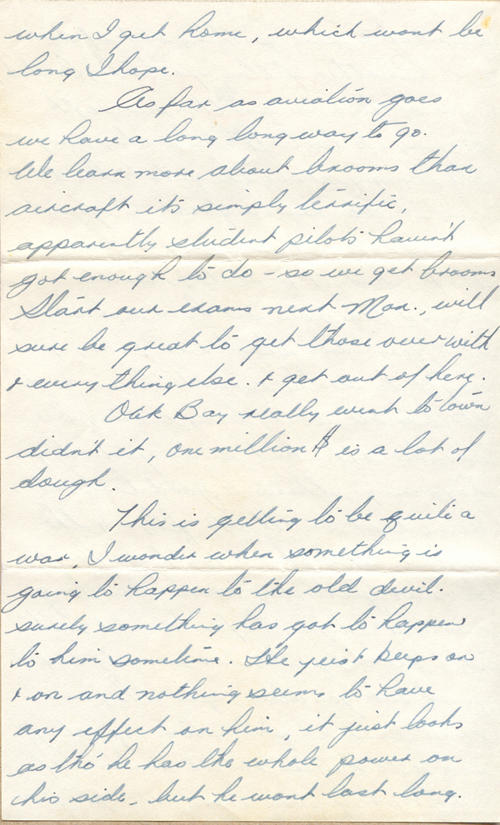 when I get home, which wont be
long I hope.
As far as aviation goes
we have a long long way to go.
We learn more about brooms than
aircraft it's simply terrific,
apparently student pilots havn't
got enough to do - so we get brooms
Start our exams next Mon., will
sure be great to get those over with
& every thing else. & get out of here.
Oak Bay really went to town
didn't it, one million $ is a lot of
dough.
This is getting to be quite a
war, I wonder when something is
going to happen to the old devil.
surely something has got to happen
to him sometime. He just keeps on
& on and nothing seems to have
any effect on him, it just looks
as tho' he has the whole power on
his side, but he wont last long.